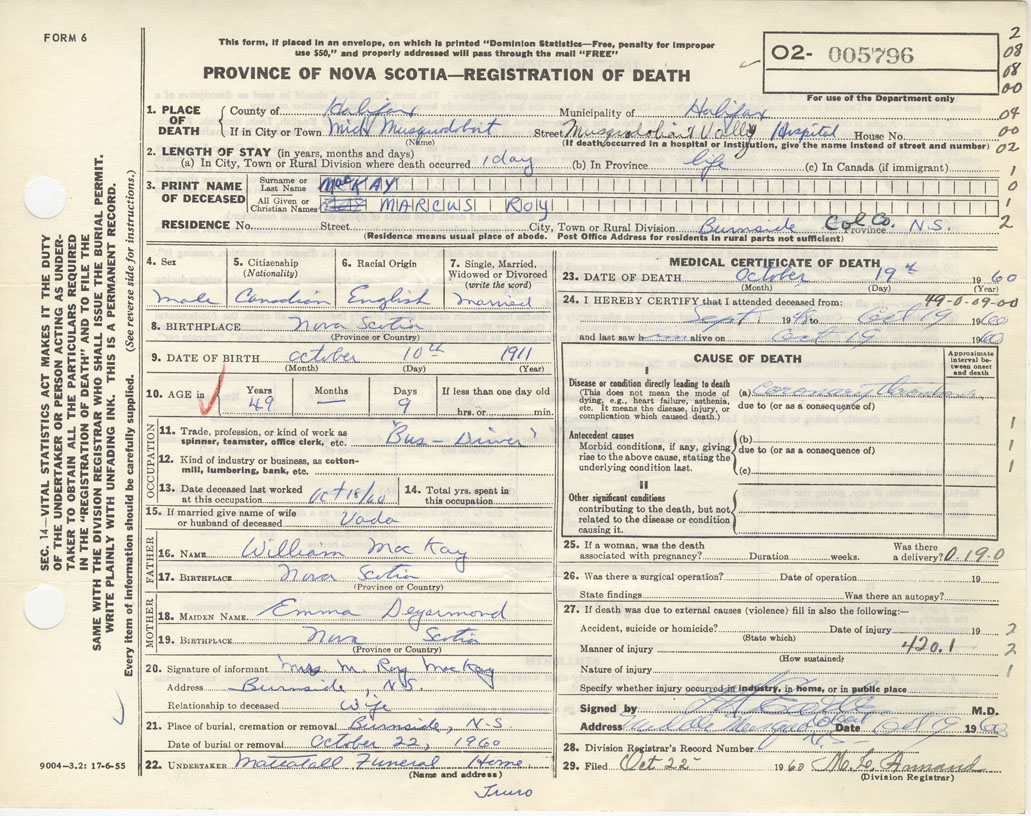 FORM 6
This form, if placed in an envelope, on which is printed "Dominion Statistics—Free, penalty for improper
use $50," and properly addressed will pass through the mail "FREE"
PROVINCE OF NOVA SCOTIA—REGISTRATION OF DEATH
O2- 005796
For use of the Department only
2
08
08
00
04
00
02
1
0
1
2
SEC. 14—VITAL STATISTICS ACT MAKES IT THE DUTY
OF THE UNDERTAKER OR PERSON ACTING AS UNDER-
TAKER TO OBTAIN ALL THE PARTICULARS REQUIRED
IN THE "REGISTRATION OF DEATH" AND TO FILE THE
SAME WITH THE DIVISION REGISTRAR WHO SHALL ISSUE THE BURIAL PERMIT.
WRITE PLAINLY WITH UNFADING INK. THIS IS A PERMANENT RECORD.
Every item of information should be carefully supplied. (See reverse side for instructions.)
1. PLACE OF DEATH County of Halifax Municipality of Halifax
If in City or Town Mid Musquodoboit Street Musquodoboit Valley Hospital House No.
(Name) (If death occurred in a hospital or institution, give the name instead of street and number)
2. LENGTH OF STAY (in years, months and days)
(a) In City, Town or Rural Division where death occurred 1 day (b) In Province life (c) In Canada (if immigrant)
3. PRINT NAME OF DECEASED Surname or Last Name MacKAY
All Given or Christian Names MARCUS ROY
RESIDENCE No. Street City, Town or Rural Division Burnside Col Co. Province N.S.
(Residence means usual place of abode. Post Office Address for residents in rural parts not sufficient)
4. Sex male
5. Citizenship (Nationality) Canadian
6. Racial Origin English
7. Single, Married, Widowed or Divorced (write the word) Married
8. BIRTHPLACE Nova Scotia
(Province or Country)
9. DATE OF BIRTH October 10th 1911
(Month) (Day) (Year)
10. AGE in Years 49 Months — Days 9 If less than one day old hrs. or min.
OCCUPATION
11. Trade, profession, or kind of work as spinner, teamster, office clerk, etc. "Bus-Driver"
12. Kind of industry or business, as cotton-mill, lumbering, bank, etc.
13. Date deceased last worked at this occupation Oct 18/60
14. Total yrs. spent in this occupation
15. If married give name of wife or husband of deceased Vada
FATHER
16. NAME William MacKay
17. BIRTHPLACE Nova Scotia
(Province or Country)
MOTHER
18. MAIDEN NAME Emma Degarmond
19. BIRTHPLACE Nova Scotia
(Province or Country)
20. Signature of informant Mrs M. Roy MacKay
Address Burnside, N.S.
Relationship to deceased Wife
21. Place of burial, cremation or removal Burnside, N.S.
Date of burial or removal October 22, 1960
22. UNDERTAKER Mattatall Funeral Home
(Name and address)
Truro
9004—3.2: 17-6-55
MEDICAL CERTIFICATE OF DEATH
23. DATE OF DEATH October 19th 1960
(Month) (Day) (Year)
49-0-09-00
24. I HEREBY CERTIFY that I attended deceased from:
Sept 19 to Oct 19 1960
and last saw h alive on Oct 19 1960
CAUSE OF DEATH
Approximate interval between onset and death
I
Disease or condition directly leading to death
(This does not mean the mode of dying, e.g., heart failure, asthenia, etc. It means the disease, injury, or complication which caused death.)
(a) Coronary Thrombosis
due to (or as a consequence of)
Antecedent causes
Morbid conditions, if any, giving rise to the above cause, stating the underlying condition last.
(b)
due to (or as a consequence of)
(c)
II
Other significant conditions
contributing to the death, but not related to the disease or condition causing it.
1
1
1
25. If a woman, was the death associated with pregnancy? Duration weeks. Was there a delivery? 0.19.0
26. Was there a surgical operation? Date of operation 19
State findings Was there an autopsy?
27. If death was due to external causes (violence) fill in also the following:—
Accident, suicide or homicide? Date of injury 19 2
(State which)
Manner of injury 420.1 2
(How sustained)
Nature of injury 1
Specify whether injury occurred in industry, in home, or in public place
Signed by M.D.
Address Middle Musquodoboit Date Oct 19 1960
N.S.
28. Division Registrar's Record Number
29. Filed Oct 22 1960
(Division Registrar)